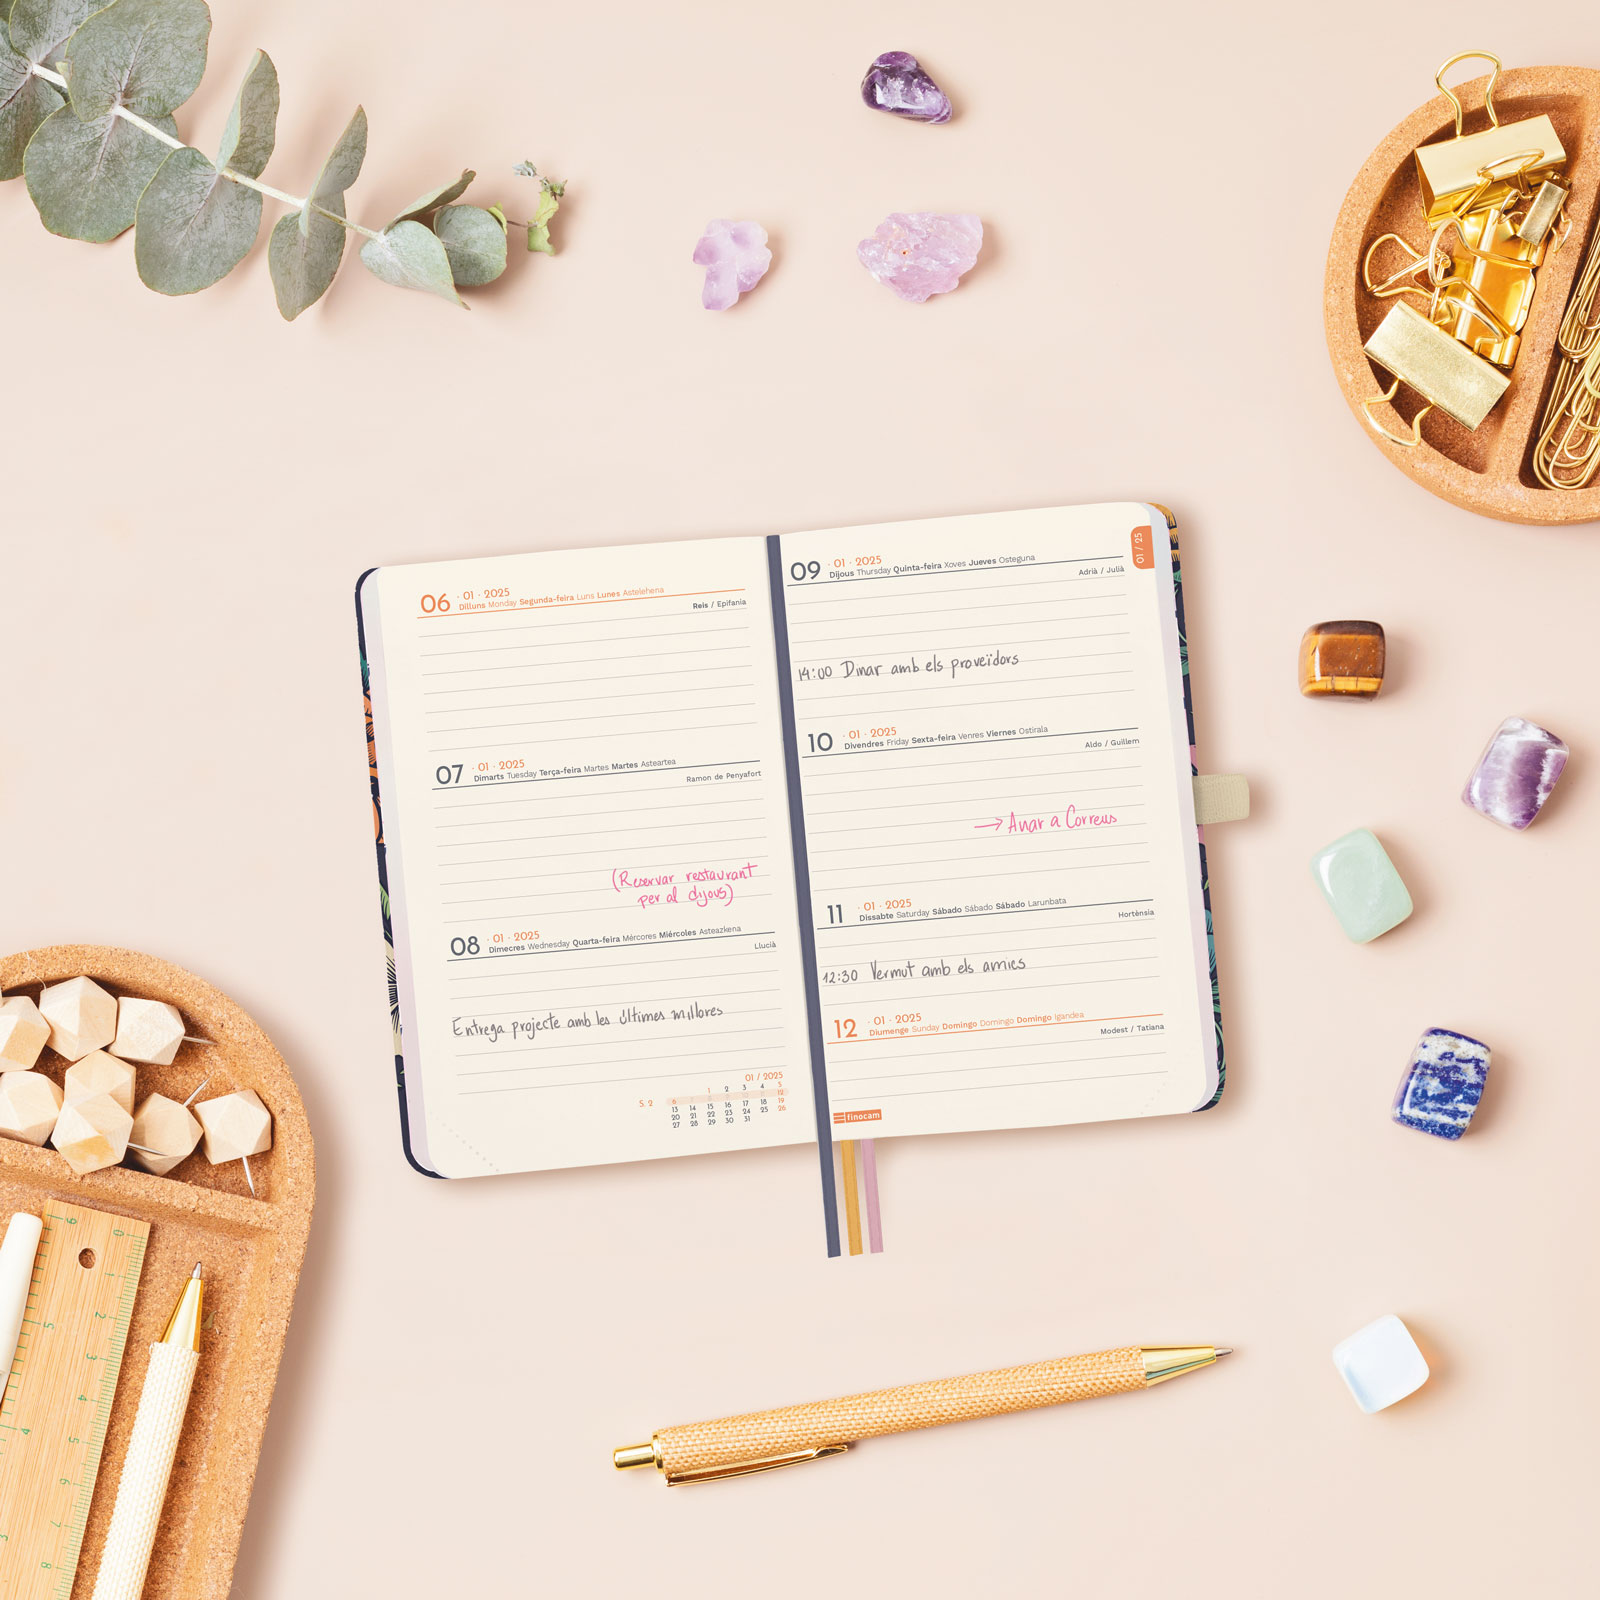 06 · 01 · 2025
Dilluns Monday Segunda-feira Luns Lunes Astelehena
Reis / Epifania
07 · 01 · 2025
Dimarts Tuesday Terça-feira Martes Martes Asteartea
Ramon de Penyafort
(Reservar restaurant
per al dijous)
08 · 01 · 2025
Dimecres Wednesday Quarta-feira Mércores Miércoles Asteazkena
Llucià
Entrega projecte amb les últimes millores
01 / 2025
1 2 3 4 5
S. 2 6 7 8 9 10 11 12
13 14 15 16 17 18 19
20 21 22 23 24 25 26
27 28 29 30 31
01 / 25
09 · 01 · 2025
Dijous Thursday Quinta-feira Xoves Jueves Osteguna
Adrià / Julià
14:00 Dinar amb els proveïdors
10 · 01 · 2025
Divendres Friday Sexta-feira Venres Viernes Ostirala
Aldo / Guillem
→ Anar a Correus
11 · 01 · 2025
Dissabte Saturday Sábado Sábado Sábado Larunbata
Hortènsia
12:30 Vermut amb els amics
12 · 01 · 2025
Diumenge Sunday Domingo Domingo Domingo Igandea
Modest / Tatiana
finocam